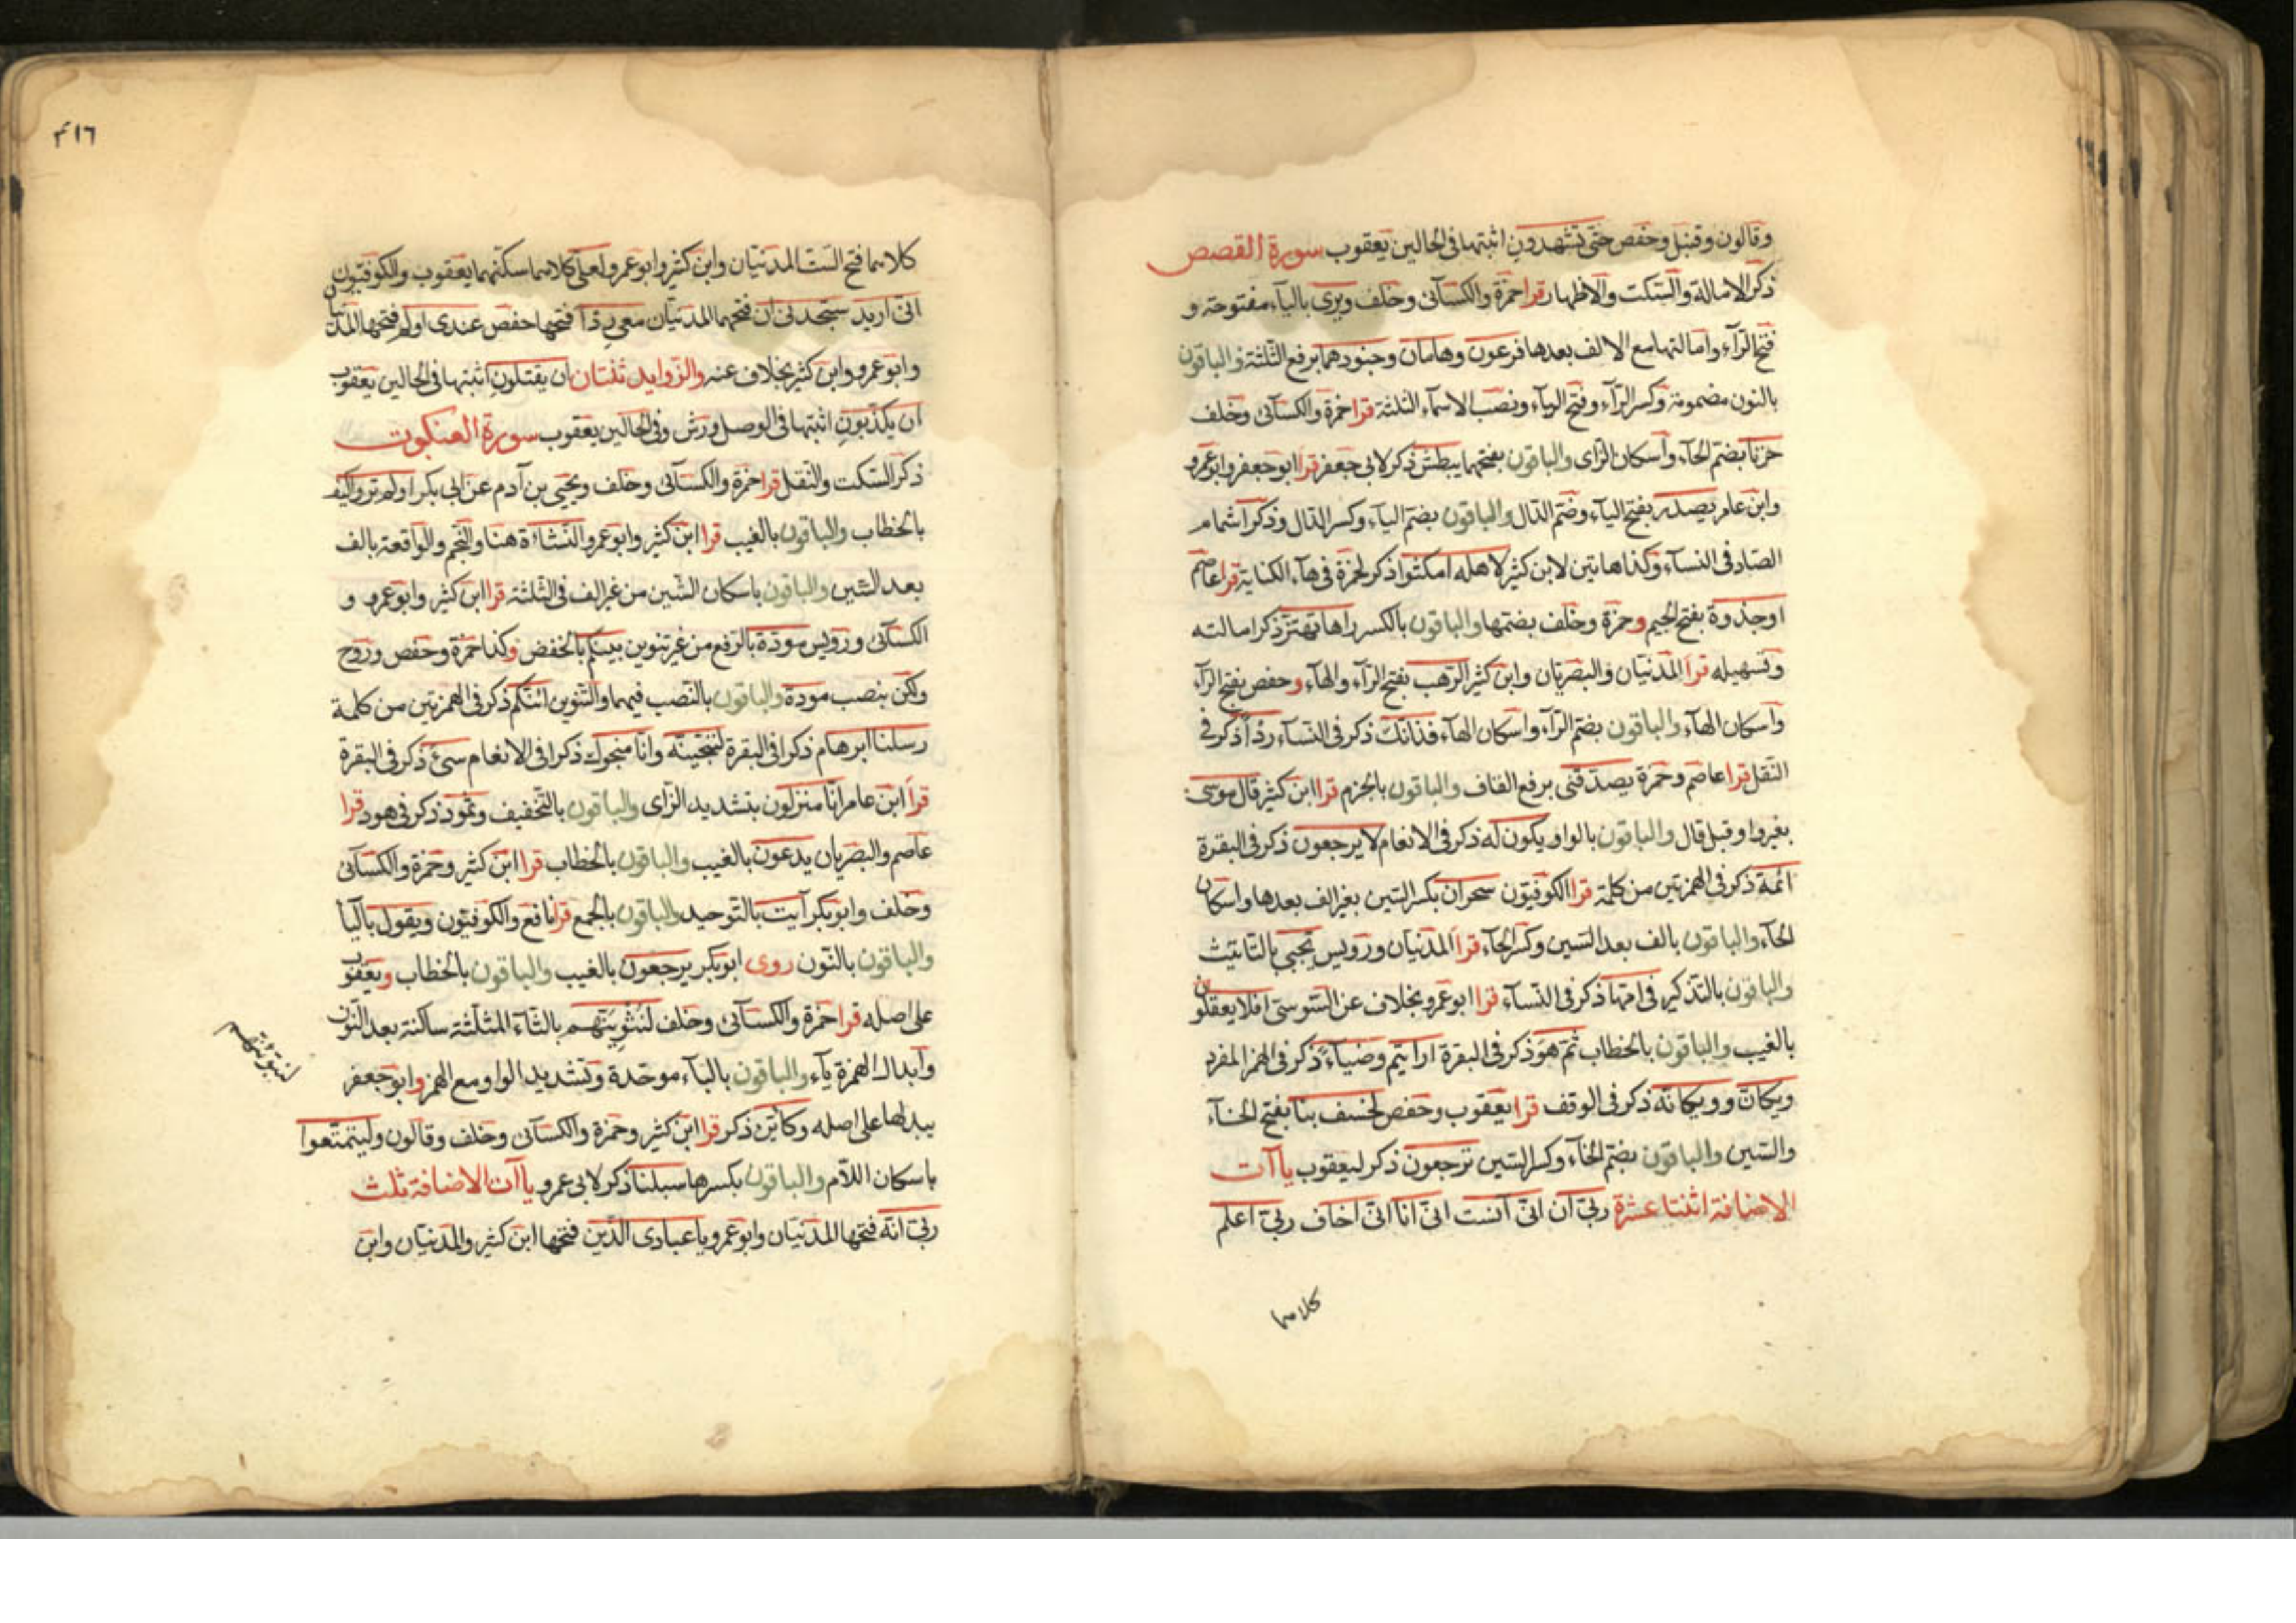 وقالون وقنبل وحفص حتى تشهدون اثبتها فى الحالين يعقوب سورة القصص
ذكر الامالة والسكت والاظهار قرا حمزة والكسآئى وخلف ويرى باليآء مفتوحة و
فتح الرآء وامالتها مع الالف بعدها فرعون وهامان وجنودهما برفع الثلثة والباقون
بالنون مضمومة وكسر الرآء وفتح اليآء ونصب الاسمآء الثلثة قرا حمزة والكسآئى وخلف
حزنا بضم الحآء واسكان الزاى والباقون بفتحهما يبطش ذكر لابى جعفر قرا ابو جعفر وابو عمرو
وابن عامر يصدر بفتح اليآء وضم الدال والباقون بضم اليآء وكسر الدال وذكر اشمام
الصاد فى النسآء وكذا هاتين لابن كثير لاهله امكثوا ذكر لحمزة فى هآء الكناية قرا عاصم
اوجذوة بفتح الجيم وحمزة وخلف بضمها والباقون بالكسر راها تهتز ذكر امالته
وتسهيله قرا المدنيان والبصريان وابن كثير الرهب بفتح الرآء والهآء وحفص بفتح الرآء
واسكان الهآء والباقون بضم الرآء واسكان الهآء فذانك ذكر فى النسآء ردًا ذكر فى
النقل قرا عاصم وحمزة يصدقنى برفع القاف والباقون بالجزم قرا ابن كثير قال موسى
بغير واو قبل قال والباقون بالواو يكون له ذكر فى الانعام لا يرجعون ذكر فى البقرة
ائمة ذكر فى الهمزتين من كلمة قرا الكوفيون سحران بكسر السين بغير الف بعدها واسكان
الحآء والباقون بالف بعد السين وكسر الحآء قرا المدنيان ورويس تجبى بالتانيث
والباقون بالتذكير فى امها ذكر فى النسآء قرا ابو عمرو بخلاف عن السوسى افلا يعقلون
بالغيب والباقون بالخطاب ثم هو ذكر فى البقرة ارايتم وضيآء ذكر فى الهمز المفرد
ويكان وويكانه ذكر فى الوقف قرا يعقوب وحفص لخسف بنا بفتح الخآء
والسين والباقون بضم الخآء وكسر السين ترجعون ذكر ليعقوب ياآت
الاضافة اثنتا عشرة ربى ان انى آنست انى انا انى اخاف ربى اعلم
كلاهما
٤١٦
كلاهما فتح الست المدنيان وابن كثير وابو عمرو لعلى كلاهما سكنهما يعقوب والكوفيون
انى اريد ستجدنى ان فتحهما المدنيان معى ردًا فتحها حفص عندى اولم فتحها المدنيان
وابو عمرو وابن كثير بخلاف عنه والزوايد ثنتان ان يقتلون اثبتها فى الحالين يعقوب
ان يكذبون اثبتها فى الوصل ورش وفى الحالين يعقوب سورة العنكبوت
ذكر السكت والنقل قرا حمزة والكسآئى وخلف ويحيى بن آدم عن ابى بكر اولم تروا كيف
بالخطاب والباقون بالغيب قرا ابن كثير وابو عمرو النشاءة هنا والنجم والواقعة بالف
بعد الشين والباقون باسكان الشين من غير الف فى الثلثة قرا ابن كثير وابو عمرو و
الكسآئى ورويس مودة بالرفع من غير تنوين بينكم بالخفض وكذا حمزة وحفص وروح
ولكن بنصب مودة والباقون بالنصب فيهما والتنوين ائنكم ذكر فى الهمزتين من كلمة
رسلنا ابرهام ذكرا فى البقرة لننجينه وانا منجوك ذكرا فى الانعام سىئ ذكر فى البقرة
قرا ابن عامر انا منزلون بتشديد الزاى والباقون بالتخفيف وثمود ذكر فى هود قرا
عاصم والبصريان يدعون بالغيب والباقون بالخطاب قرا ابن كثير وحمزة والكسآئى
وخلف وابو بكر آيت بالتوحيد والباقون بالجمع قرا نافع والكوفيون ويقول باليآ
والباقون بالنون روى ابو بكر يرجعون بالغيب والباقون بالخطاب ويعقوب
على اصله قرا حمزة والكسآئى وخلف لنثوينهم بالثآء المثلثة ساكنة بعد النون
وابدال الهمزة يآء والباقون بالبآء موحدة وتشديد الواو مع الهمز وابو جعفر
يبدلها على اصله وكاين ذكر قرا ابن كثير وحمزة والكسآئى وخلف وقالون وليتمتعوا
باسكان اللام والباقون بكسرها سبلنا ذكر لابى عمرو ياآت الاضافة ثلث
ربى انه فتحها المدنيان وابو عمرو ياعبادى الذين فتحها ابن كثير والمدنيان وابن